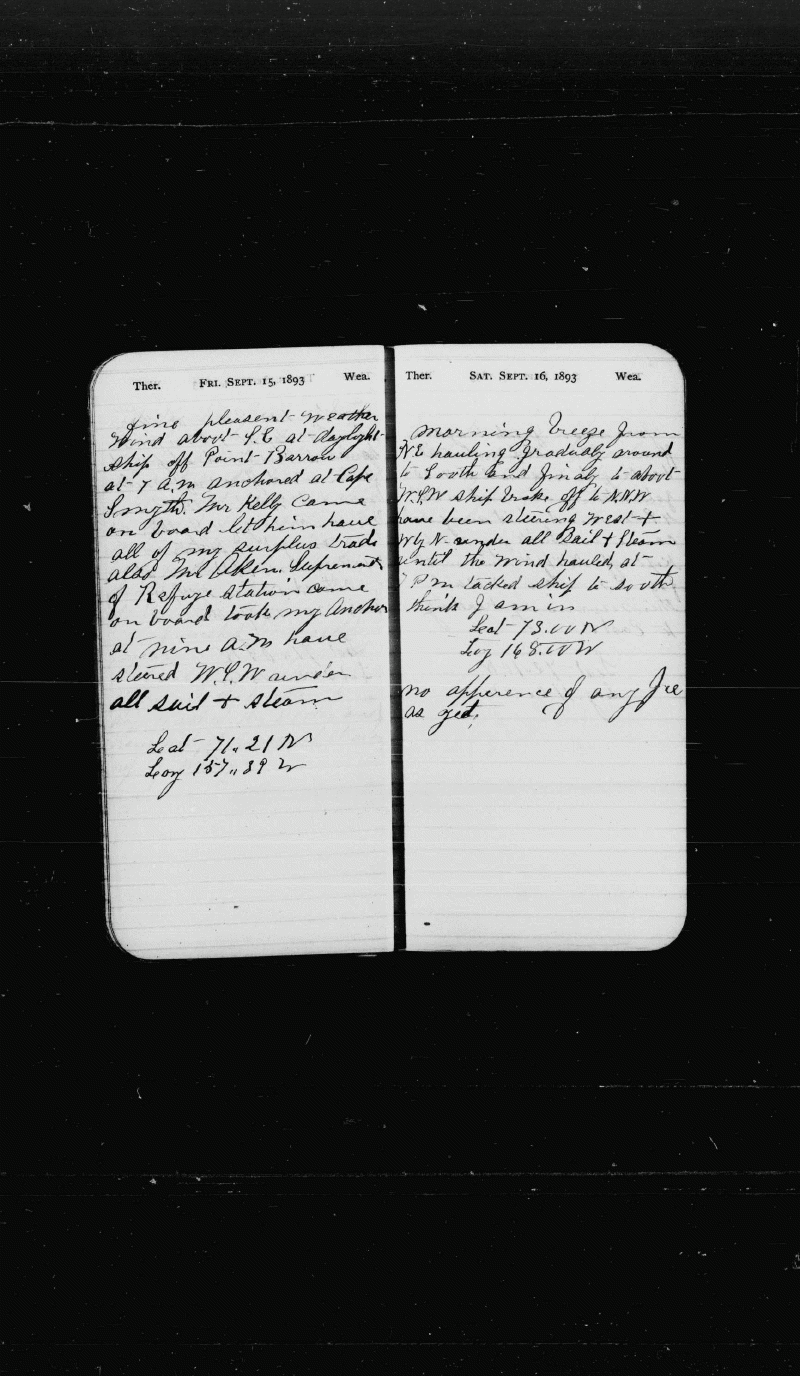 Ther. FRI. SEPT. 15, 1893 Wea.
fine pleasent weather
Wind about S.E at daylight
ship off Point Barrow
at 7 a.m anchored at Cape
Smyth. Mr Kelly came
on board let him have
all of my surplus trade
also Mr Aken.
of Refuge station came
on board took my Anchor
at nine A.M have
steared W.S.W under
all sail + steam
Leat 71,, 21 N
Long 157,, 39 W
Ther. SAT. SEPT. 16, 1893 Wea.
Morning breeze from
NE hauling gradualy around
to South and finaly to about
W.S.W ship broke off to N.N.W
have been steering West +
W by N under all Sail + Steam
until the Wind hauled, at
P m tacked ship to south
think I am in
Leat 73.00 N
Long 168.00 W
no apperence of any Ice
as yet.